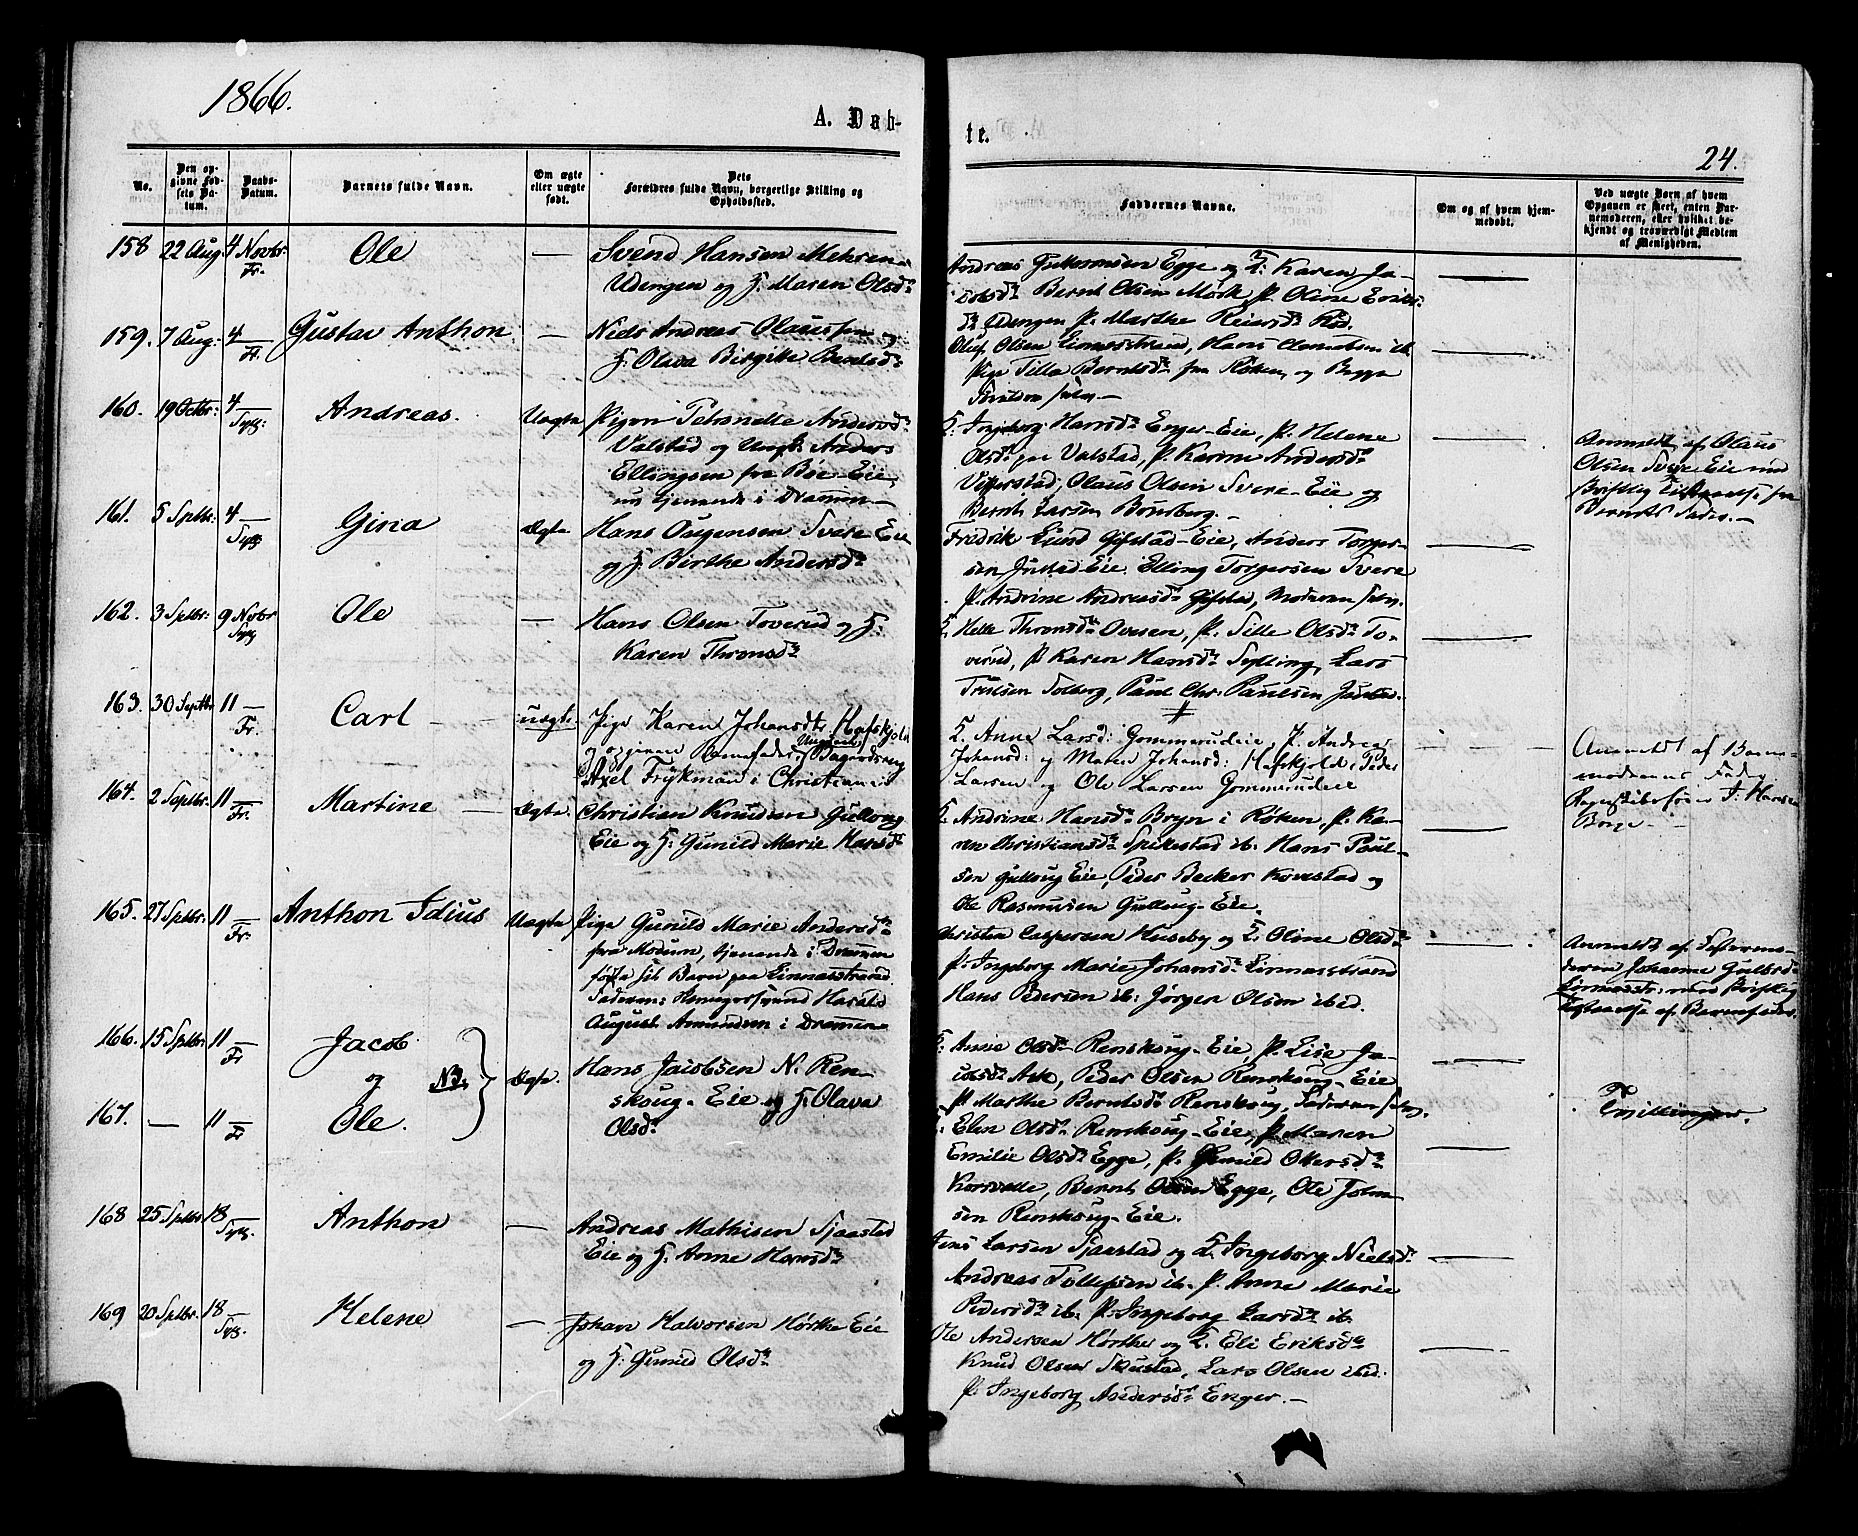 1866.
A. Døb-
te.
24.
No.
Den op-
givne Fød-
sels Da-
tum.
Daabs-
Datum.
Barnets fulde Navn.
Om ægte
eller uægte
født.
Dets
Forældres fulde Navn, borgerlige Stilling og
Opholdssted.
Faddernes Navne.
Om og af hvem hjem-
medøbt.
Ved uægte Børn af hvem
Opgaven er skeet, enten Bar-
nemoderen, eller hvilket be-
kjendt og troværdigt Medlem
af Menigheden.
158 22 Aug: 4 Novbr: Fr. Ole —
Svend Hansen Mehren-
Udengen og H. Maren Olsdr
Andreas Guttormsen Egge og H: Karen Ja-
cobsdr Bernt Olsen Mørk, P. Oline Eriks-
dr Udengen P. Marthe Reiersdr Rød.
159. 7 Aug: 4 Fr. Gustav Anthon —
Niels Andreas Olaussen og
H. Olava Birgitte Berntsdr
Oluf Olsen Linnesstrand, Hans ib.
Pige Tilla Berntsdr fra Røken, og
160. 19 Octbr: 4 Syll: Andreas. Uægte
Pigen Petronelle Andersdr
Valstad og Ungk. Anders
Ellingsen fra Bøe-Eie,
nu tjenende i Drammen
H: Ingeborg Hansdr Enger-Eie, P. Helene
Olsdr paa Valstad, P. Karine Andersdr
Vifferstad, Olaus Olsen Svere-Eie og
Bernt Larsen Bømberg.
Anmeldt af Olaus
Olsen Svere Eie med
Skriftlig Tilstaaelse fra
Barnets Fader.
161. 5 Septbr: 4 Syll Gina Ægte
Hans Svere Eie
og H. Birthe Andersdr
Fredrik Lund Gifstad-Eie, Anders Torger-
sen Justad Eie. Elling Torgersen Svere
P. Andrine Andreasdr Gifstad, Moderen selv.
162. 3 Septbr: 9 Novbr Syll Ole —
Hans Olsen Toverud og H:
Karen Thronsdr
H. Helle Thronsdr Ovesen, P. Sille Olsdr To-
verud, P Karen Hansdr Sylling, Lars
Trulsen Solberg, Paul Chr. Paulsen Justad.
163. 30 Septbr 11 Fr. Carl uægte.
Pige Karen Johansdtr. Hafskjold
og opgiven Barnefader, Ungkarl,
Axel Frykman i Christiania
H. Anne Larsd: Gommerudeie P. Andrea
Johansd: og Maren Johansd: Hafskjold, Peder
Larsen og Ole Larsen Gommerudeie
Anmeldt af Barne-
moderens Fader
J. Hansen
Borge
164. 2 Septbr. 11 Fr. Martine Ægte.
Christian Knudsen Gulloug
Eie og H. Gunild Marie Hansdr
H. Andrine Hansdr Bryn i Røken, P. Ka-
ren Christiansdr Spikestad ib. Hans Paul-
sen Gulloug Eie, Peder Becker Kovestad og
Ole Rasmussen Gulloug-Eie.
165. 27 Septbr. 11 Fr: Anthon Idius Uægte
Pige Gunild Marie Andersdr
fra Modum, tjenende i Drammen
født sit Barn paa Linnesstrand
Faderen: Harald
August Amundsen i Drammen
Christen Caspersen Huseby og H. Oline Olsdr
P: Ingeborg Marie Johansdr Linnesstrand
Hans Pedersen ib: Jörgen Olsen ibid.
Anmeldt af Jorde-
deren Johanne Gulbrdr
Linnesstr: med Skriftlig
Tilstaaelse af Barnefader.
166. 15 Septbr 11 Fr Jacob
og NB.
167. — 11 Fr Ole. Ægte.
Hans Jacobsen N. Ren-
skoug-Eie og H. Olava
Olsdr
H: Anne Olsdr Renskoug-Eie, P. Lise Ja-
cobsdr Ask, Peder Olsen Renskoug-Eie
P Marthe Berntsdr Renskoug, Faderen selv.
H: Elen Olsdr Renskoug-Eie, P. Maren
Emilie Olsdr Egge, P. Gunild Ottersdr
Korsvolle, Bernt Olsen Egge, Ole Johan-
sen Renskoug-Eie.
Tvillinger.
168 25 Septbr 18 Syll. Anthon —
Andreas Mathisen Sjaastad
Eie og H. Anne Hansdr
Jens Larsen Sjaastad og H. Ingeborg Nielsdr
Andreas Tollefsen ib. P. Anne Marie
Pedersdr ib. P. Ingeborg Larsdr ib.
169 20 Septbr. 18 Syll. Helene —
Johan Halvorsen Hörthe Eie
og H: Gunild Olsdr
Ole Andersen Hörthe og H. Eli Eriksdr
Knud Olsen Skustad, Lars Olsen ibid.
P. Ingeborg Andersdr Enger.